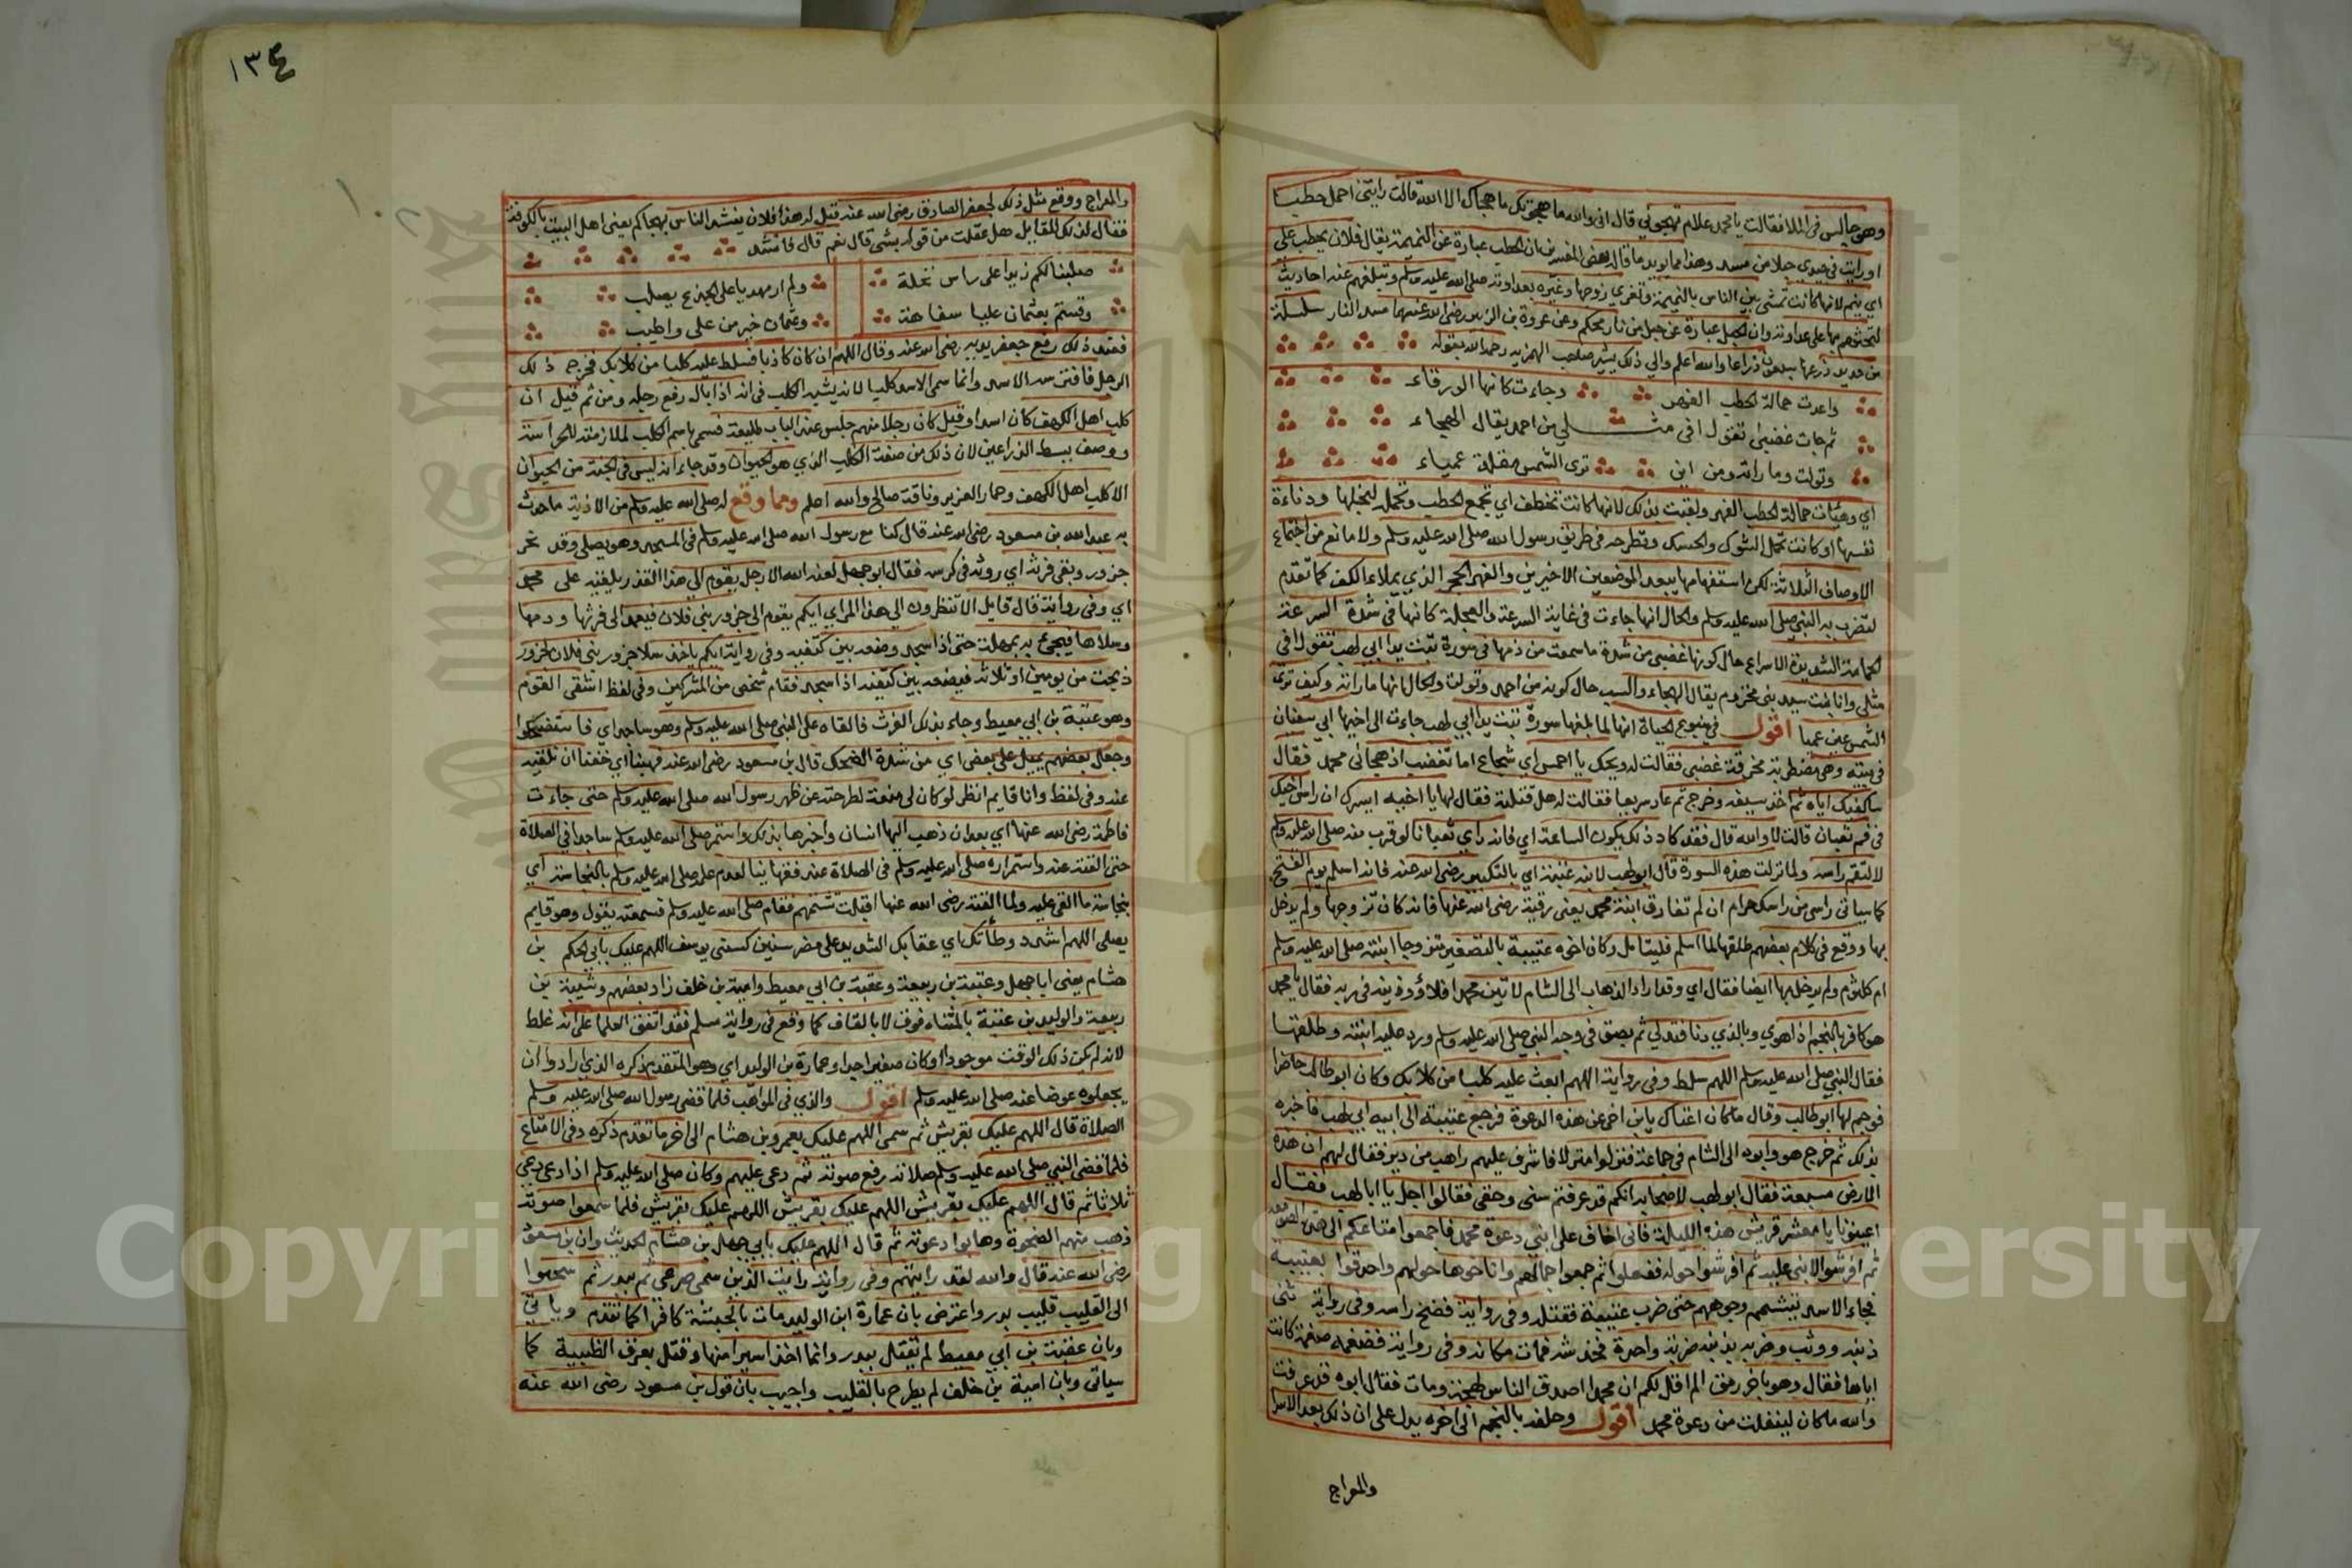 وهو جالس في الملا فقالت يا محمد علام تهجوني قال اني والله ما هجوتك ما هجاك الا الله قالت رايتني احمل حطبا
او رايت في جيدي حبلا من مسد وهذا مما يويد ما قال بعض المفسرين ان الحطب عبارة عن النميمة يقال فلان يحطب علي
اي ينم لانها كانت تمشي بين الناس بالنميمة وتغري زوجها وغيره بعداوته صلى الله عليه وسلم وتبلغهم عنه احاديث
لتحثهم بها على عداوته وان الحبل عبارة عن حبل من نار محكم وعن عروة بن الزبير رضى الله عنهما مسد النار سلسلة
من حديد ذرعها سبعون ذراعا والله اعلم والي ذلك يشير صاحب الهمزيه رحمه الله بقوله
واعدت حمالة الحطب الفهر وجاءت كانها الورقاء
ثم جات غضبى تقول افي مثلي من احمد يقال الهجاء
وتولت وما راته ومن اين ترى الشمس مقلة عمياء
اي وهيات حمالة الحطب الفهر ولقبت بذلك لانها كانت تحتطب اي تجمع الحطب وتحمله لبخلها ودناءة
نفسها او كانت تحمل الشوك والحسك وتطرحه في طريق رسول الله صلى الله عليه وسلم ولا مانع من اجتماع
الاوصاف الثلاثة لكن استفهامها يبعد الموضعين الاخيرين والفهر الحجر الذي يملاء الكف كما تقدم
لتضرب به النبي صلى الله عليه وسلم والحال انها جاءت في غاية السرعة والعجلة كانها في شدة السرعة
الحمامة الشديدة الاسراع حال كونها غضبى من شدة ما سمعت من ذمها في سورة تبت يدا ابي لهب تقول افي
مثلي وانا بنت سيد بني مخزوم يقال الهجاء والسب حال كونه من احمد وتولت والحال انها ما راته وكيف ترى
الشمس عين عميا اقول في ينبوع الحياة انها لما بلغها سورة تبت يدا ابي لهب جاءت الى اخيها ابي سفيان
في بيته وهي مضطربة محرقة غضبى فقالت له ويحك يا احمس اي شجاع اما تغضب اذ هجاني محمد فقال
ساكفيك اياه ثم اخذ سيفه وخرج ثم عاد سريعا فقالت له هل قتلته فقال لها يا اخيه ايسرك ان راس اخيك
في فم ثعبان قالت لا والله قال فقد كاد ذلك يكون الساعة اي فانه راي ثعبانا لو قرب منه صلى الله عليه وسلم
لالتقم راسه ولما نزلت هذه السورة قال ابو لهب لابنه عتبة اي بالتكبير رضى الله عنه فانه اسلم يوم الفتح
كما سياتي راسي من راسك حرام ان لم تفارق ابنة محمد يعني رقية رضى الله عنها فانه كان تزوجها ولم يدخل
بها ووقع في كلام بعضهم طلقها لما اسلم فليتامل وكان اخوه عتيبة بالتصغير متزوجا ابنته صلى الله عليه وسلم
ام كلثوم ولم يدخل بها ايضا فقال اي وقد اراد الذهاب الى الشام لاتين محمدا فلاوذينه في ربه فقال يا محمد
هو كافر بالنجم اذا هوي وبالذي دنا فتدلي ثم بصق في وجه النبي صلى الله عليه وسلم ورد عليه ابنته وطلقها
فقال النبي صلى الله عليه وسلم اللهم سلط وفي رواية اللهم ابعث عليه كلبا من كلابك وكان ابو طالب حاضرا
فوجم لها ابو طالب وقال ما كان اغناك يا بن اخي عن هذه الدعوة فرجع عتيبة الى ابيه ابي لهب فاخبره
بذلك ثم خرج هو وابوه الى الشام في جماعة فنزلوا منزلا فاشرف عليهم راهب من دير فقال لهم ان هذه
الارض مسبعة فقال ابو لهب لاصحابه انكم قد عرفتم سني وحقي فقالوا اجل يا ابا لهب فقال
اعينونا يا معشر قريش هذه الليلة فاني اخاف على ابني دعوة محمد فاجمعوا متاعكم الى هذه الصومعة
ثم افرشوا لابني عليه ثم افرشوا حوله ففعلوا ثم جمعوا جمالهم واناخوها حولهم واحدقوا بعتيبه
فجاء الاسد يتشمم وجوههم حتى ضرب عتيبة فقتله وفي رواية فضخ راسه وفي رواية ثنى
ذنبه ووثب وضربه بذنبه ضربة واحدة فخدشه فمات مكانه وفي رواية فضغمه ضغمة كانت
اياها فقال وهو باخر رمق الم اقل لكم ان محمدا اصدق الناس لهجة ومات فقال ابوه قد عرفت
والله ما كان لينفلت من دعوة محمد اقول وحلفه بالنجم الى اخره يدل على ان ذلك بعد الاسرا
والمعراج
١٣٤
والمعراج ووقع مثل ذلك لجعفر الصادق رضى الله عنه قيل له هذا فلان ينشد الناس بهجاكم يعني اهل البيت بالكوفة
فقال لذلك القايل هل علقت من قوله بشي قال نعم قال فانشد
صلبنا لكم زيدا على راس نخلة ولم ار مهديا على الجذع يصلب
وقستم بعثمان عليا سفاهة وعثمان خير من علي واطيب
فعند ذلك رفع جعفر يديه رضى الله عنه وقال اللهم ان كان كاذبا فسلط عليه كلبا من كلابك فخرج ذلك
الرجل فافترسه الاسد وانما سمى الاسد كلبا لانه يشبه الكلب في انه اذا بال رفع رجله ومن ثم قيل ان
كلب اهل الكهف كان اسدا وقيل كان رجلا منهم جلس عند الباب طليعة فسمى باسم الكلب لملازمته للحراسة
ووصف ببسط الذراعين لان ذلك من صفة الكلب الذي هو الحيوان وقد جاء انه ليس في الجنة من الحيوان
الا كلب اهل الكهف وحمار العزير وناقة صالح والله اعلم ومما وقع له صلى الله عليه وسلم من الاذية ما حدث
به عبد الله بن مسعود رضى الله عنه قال كنا مع رسول الله صلى الله عليه وسلم في المسجد وهو يصلى وقد نحر
جزور وبقي فرثه اي روثه في كرشه فقال ابو جهل لعنه الله الا رجل يقوم الى هذا القذر يلقيه على محمد
اي وفي رواية قال قايل الا تنظرون الى هذا المراي ايكم يقوم الى جزور بني فلان فيعمد الى فرثها ودمها
وسلاها فيجئ به يمهله حتى اذا سجد وضعه بين كتفيه وفي رواية ايكم ياخذ سلا جزور بني فلان لجزور
ذبحت من يومين او ثلاثة فيضعه بين كتفيه اذا سجد فقام شخص من المشركين وفي لفظ اشقى القوم
وهو عقبة بن ابي معيط وجاء بذلك الفرث فالقاه على النبي صلى الله عليه وسلم وهو ساجد اي فاستضحكوا
وجعل بعضهم يميل على بعض اي من شدة الضحك قال بن مسعود رضى الله عنه فهبنا اي خفنا ان نلقيه
عنه وفي لفظ وانا قايم انظر لو كان لي منعة لطرحته عن ظهر رسول الله صلى الله عليه وسلم حتى جاءت
فاطمة رضى الله عنها اي بعد ان ذهب اليها انسان واخبرها بذلك واستمر صلى الله عليه وسلم ساجدا في الصلاة
حتى القته عنه واستمراره صلى الله عليه وسلم في الصلاة عند فقهاينا لعدم علمه صلى الله عليه وسلم بالنجاسة اي
بنجاسة ما القي عليه ولما القته رضى الله عنها اقبلت تشتمهم فقام صلى الله عليه وسلم فسمعته يقول وهو قايم
يصلى اللهم اشدد وطأتك اي عقابك الشديد على مضر سنين كسنى يوسف اللهم عليك بابي الحكم بن
هشام يعني ابا جهل وعتبة بن ربيعة وعقبة بن ابي معيط وامية بن خلف زاد بعضهم وشيبة بن
ربيعة والوليد بن عتبة بالمثناه فوق لا بالقاف كما وقع في رواية مسلم فقد اتفق العلما على انه غلط
لانه لم يكن ذلك الوقت موجودا او كان صغيرا جدا وعمارة بن الوليد اي وهو المتقدم ذكره الذي ارادوا ان
يجعلوه عوضا عنه صلى الله عليه وسلم اقول والذي في المواهب فلما قضى رسول الله صلى الله عليه وسلم
الصلاة قال اللهم عليك بقريش ثم سمى اللهم عليك بعمرو بن هشام الى اخر ما تقدم ذكره وفي الامتاع
فلما قضى النبي صلى الله عليه وسلم صلاته رفع صوته ثم دعى عليهم وكان صلى الله عليه وسلم اذا دعى دعى
ثلاثا ثم قال اللهم عليك بقريش اللهم عليك بقريش اللهم عليك بقريش فلما سمعوا صوته
ذهب منهم الضحوة وهابوا دعوته ثم قال اللهم عليك بابي جهل بن هشام الحديث وان بن مسعود
رضى الله عنه قال والله لقد رايتهم وفي رواية رايت الذين سمى صرعى ثم ببدر ثم سحبوا
الى القليب قليب بدر واعترض بان عمارة ابن الوليد مات بالحبشة كافرا كما تقدم وياتي
وبان عقبة بن ابي معيط لم يقتل ببدر وانما اخذ اسيرا منها وقتل بعرف الظبية كما
سياتي وبان امية بن خلف لم يطرح بالقليب واجيب بان قول بن مسعود رضى الله عنه
Copyright © King Saud University